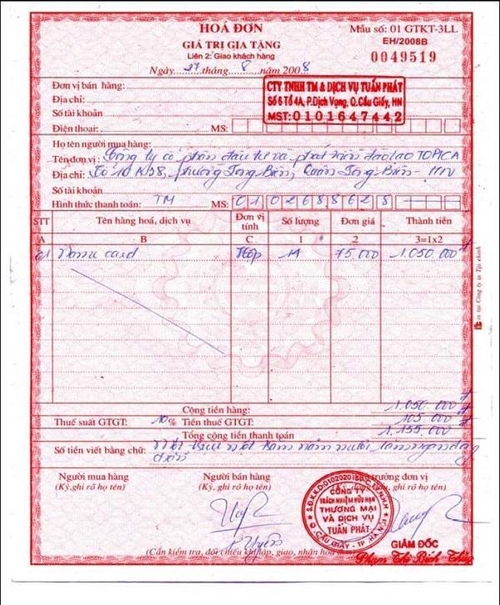 HOÁ ĐƠN
GIÁ TRỊ GIA TĂNG
Liên 2: Giao khách hàng
Ngày 27 tháng 8 năm 2008
Mẫu số: 01 GTKT-3LL
EH/2008B
0049519
Đơn vị bán hàng:
Địa chỉ:
Số tài khoản
Điện thoại: MS:
CTY TNHH TM & DỊCH VỤ TUẤN PHÁT
Số 6 Tổ 4A, P.Dịch Vọng, Q.Cầu Giấy, HN
MST: 0101647442
Họ tên người mua hàng:
Tên đơn vị: Công ty cổ phần đầu tư và phát triển đào tạo TOPICA
Địa chỉ: Số phường Long Biên, Quận Long Biên - HN
Số tài khoản
Hình thức thanh toán: TM MS: 0102688628
STT Tên hàng hoá, dịch vụ Đơn vị tính Số lượng Đơn giá Thành tiền
A B C 1 2 3=1x2
01 card Hộp 14 75.000 1.050.000
Cộng tiền hàng: 1.050.000
Thuế suất GTGT: 10% Tiền thuế GTGT: 105.000
Tổng cộng tiền thanh toán 1.155.000
Số tiền viết bằng chữ: Một triệu một trăm năm mươi lăm ngàn đồng
chẵn
Người mua hàng
(Ký, ghi rõ họ tên)
Người bán hàng
(Ký, ghi rõ họ tên)
trưởng đơn vị
CÔNG TY
TRÁCH NHIỆM HỮU HẠN
THƯƠNG MẠI
VÀ DỊCH VỤ
TUẤN PHÁT
Q. CẦU GIẤY - TP. HÀ NỘI
GIÁM ĐỐC
Phạm Thị Bích Thủy
(Cần kiểm tra, đối chiếu khi lập, giao, nhận hoá đơn)